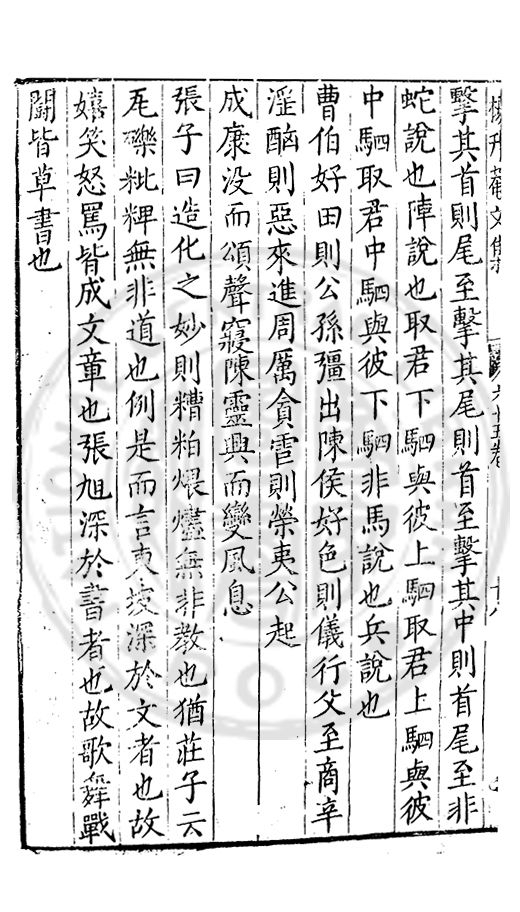 楊升菴文集 卷六十五 十八
擊其首則尾至擊其尾則首至擊其中則首尾至非
蛇說也陣說也取君下駟與彼上駟取君上駟與彼
中駟取君中駟與彼下駟非馬說也兵說也
曹伯好田則公孫彊出陳侯好色則儀行父至商辛
淫酗則惡來進周厲貪𠷢則榮夷公起
成康没而頌聲寢陳靈興而變風息
張子曰造化之妙則糟粕煨燼無非教也猶莊子云
瓦礫粃粺無非道也例是而言東坡深於文者也故
嬉笑怒罵皆成文章也張旭深於書者也故歌舞戰
鬭皆草書也